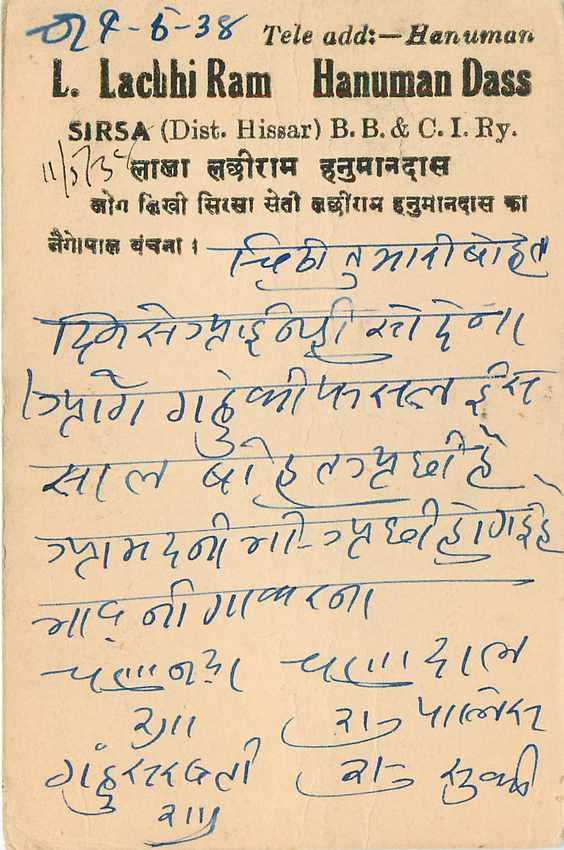 9-5-38 Tele add:—Hanuman
L. Lachhi Ram Hanuman Dass
SIRSA (Dist. Hissar) B. B. & C. I. Ry.
11/5/38 लाला लछीराम हनुमानदास
जोग लिखी सिरसा सेती लछीराम हनुमानदास का
जैगोपाल बंचना ।
चिठी तुमारी बोहत
दिन से आई नही सो देना
आगे गहु की फसल ईस
साल बोहत अछी है
आमदनी भी अछी हो गई है
भाव नीगा करना
चणा दाल